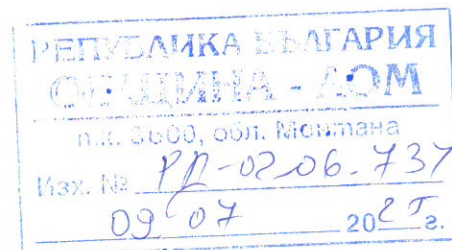 РЕПУБЛИКА БЪЛГАРИЯ
ОБЩИНА - ЛОМ
п.к. 3600, обл. Монтана
Изх. № РД-02-06-737
09.07 2025 г.